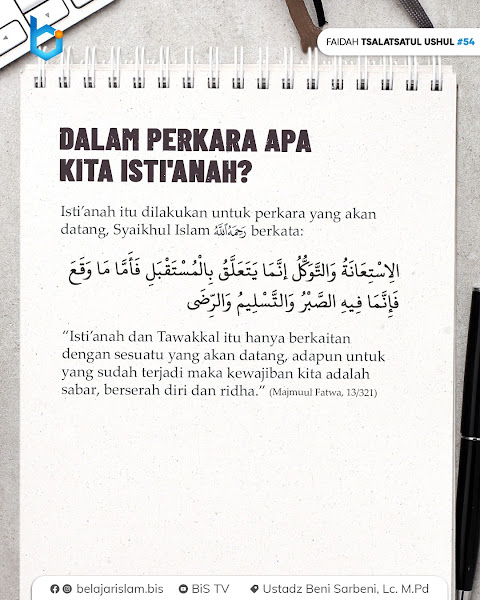 FAIDAH TSALATSATUL USHUL #54
DALAM PERKARA APA
KITA ISTI'ANAH?
Isti'anah itu dilakukan untuk perkara yang akan
datang, Syaikhul Islam رَحِمَهُ اللهُ berkata:
الِاسْتِعَانَةُ وَالتَّوَكُّلُ إنَّمَا يَتَعَلَّقُ بِالْمُسْتَقْبَلِ فَأَمَّا مَا وَقَعَ
فَإِنَّمَا فِيهِ الصَّبْرُ وَالتَّسْلِيمُ وَالرِّضَى
“Isti’anah dan Tawakkal itu hanya berkaitan
dengan sesuatu yang akan datang, adapun untuk
yang sudah terjadi maka kewajiban kita adalah
sabar, berserah diri dan ridha.” (Majmuul Fatwa, 13/321)
belajarislam.bis BiS TV Ustadz Beni Sarbeni, Lc. M.Pd